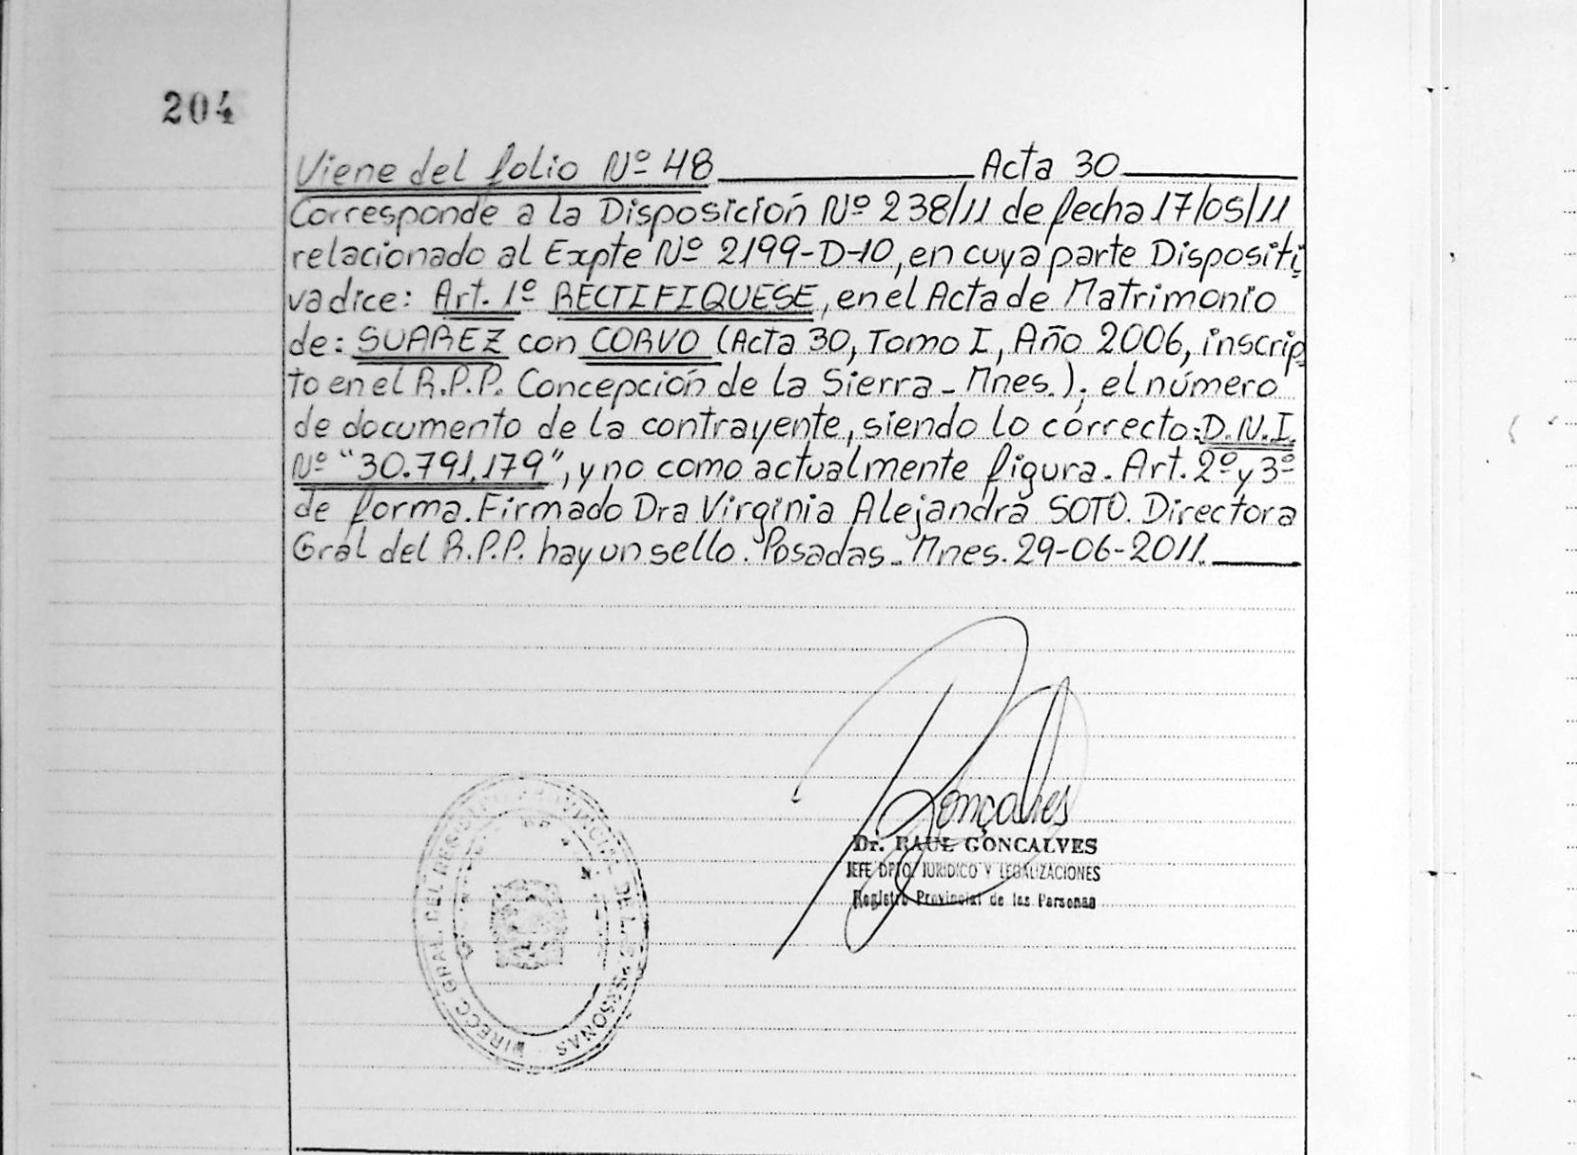 204
Viene del folio Nº 48 Acta 30
Corresponde a la Disposición Nº 238/11 de fecha 17/05/11
relacionado al Expte Nº 2199-D-10, en cuya parte Dispositi
va dice: Art. 1º RECTIFIQUESE, en el Acta de Matrimonio
de: SUAREZ con CORVO (Acta 30, Tomo I, Año 2006, inscrip
to en el R.P.P. Concepción de la Sierra - Mnes.); el número
de documento de la contrayente, siendo lo correcto: D.N.I.
Nº "30.791.179", y no como actualmente figura. Art. 2º y 3º
de forma. Firmado Dra Virginia Alejandra SOTO. Directora
Gral del R.P.P. hay un sello. Posadas - Mnes. 29-06-2011.
Gonçalves
Dr. RAUL GONCALVES
JEFE DPTO. JURIDICO Y LEGALIZACIONES
Registro Provincial de las Personas
DIRECC. GRAL. DEL REGISTRO PROVINCIAL DE LAS PERSONAS